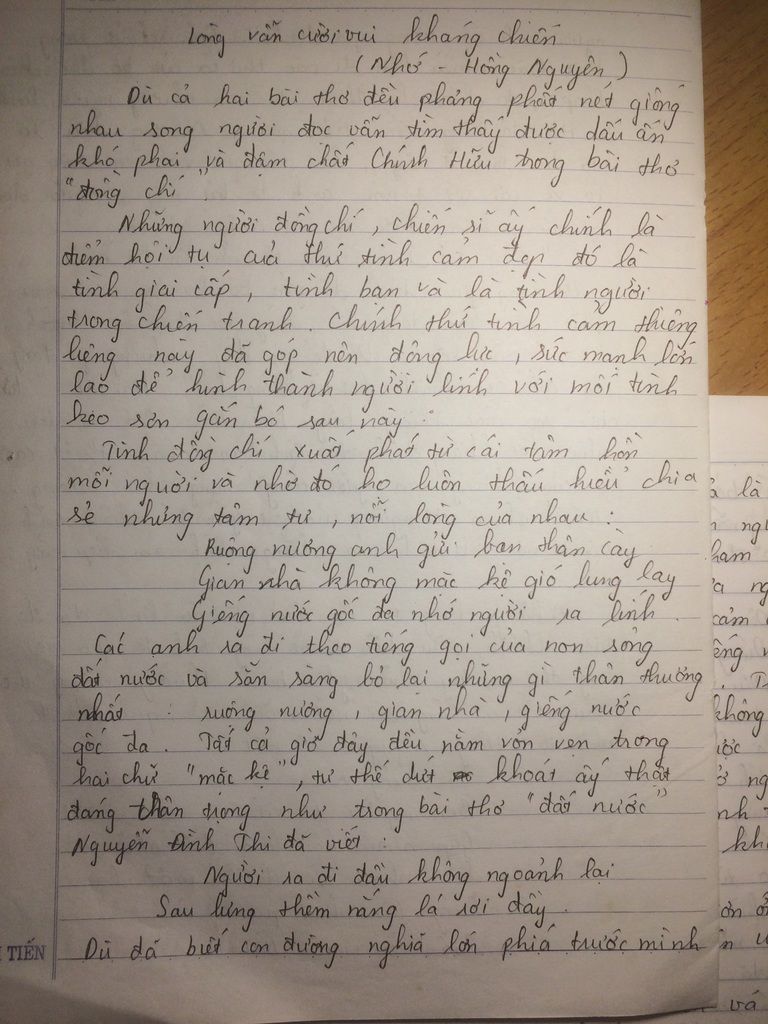 Lòng vẫn cười vui kháng chiến
( Nhớ - Hồng Nguyên )
Dù cả hai bài thơ đều phảng phất nét giống
nhau song người đọc vẫn tìm thấy được dấu ấn
khó phai và đậm chất Chính Hữu trong bài thơ
"đồng chí".
Những người đồng chí, chiến sĩ ấy chính là
điểm hội tụ của thứ tình cảm đẹp đó là
tình giai cấp, tình bạn và là tình người
trong chiến tranh. Chính thứ tình cảm thiêng
liêng này đã góp nên động lực, sức mạnh lớn
lao để hình thành người lính với mối tình
keo sơn gắn bó sau này:
Tình đồng chí xuất phát từ cái tâm hồn
mỗi người và nhờ đó họ luôn thấu hiểu chia
sẻ những tâm tư, nỗi lòng của nhau:
Ruộng nương anh gửi bạn thân cày
Gian nhà không mặc kệ gió lung lay
Giếng nước gốc đa nhớ người ra lính.
Các anh ra đi theo tiếng gọi của non sông
đất nước và sẵn sàng bỏ lại những gì thân thương
nhất: ruộng nương, gian nhà, giếng nước
gốc đa. Tất cả giờ đây đều nằm vỏn vẹn trong
hai chữ "mặc kệ", tư thế dứt khoát ấy thật
đáng trân trọng như trong bài thơ "đất nước"
Nguyễn Đình Thi đã viết:
Người ra đi đầu không ngoảnh lại
Sau lưng thềm nắng lá rơi đầy.
Dù đã biết con đường nghĩa lớn phía trước mình
TIẾN